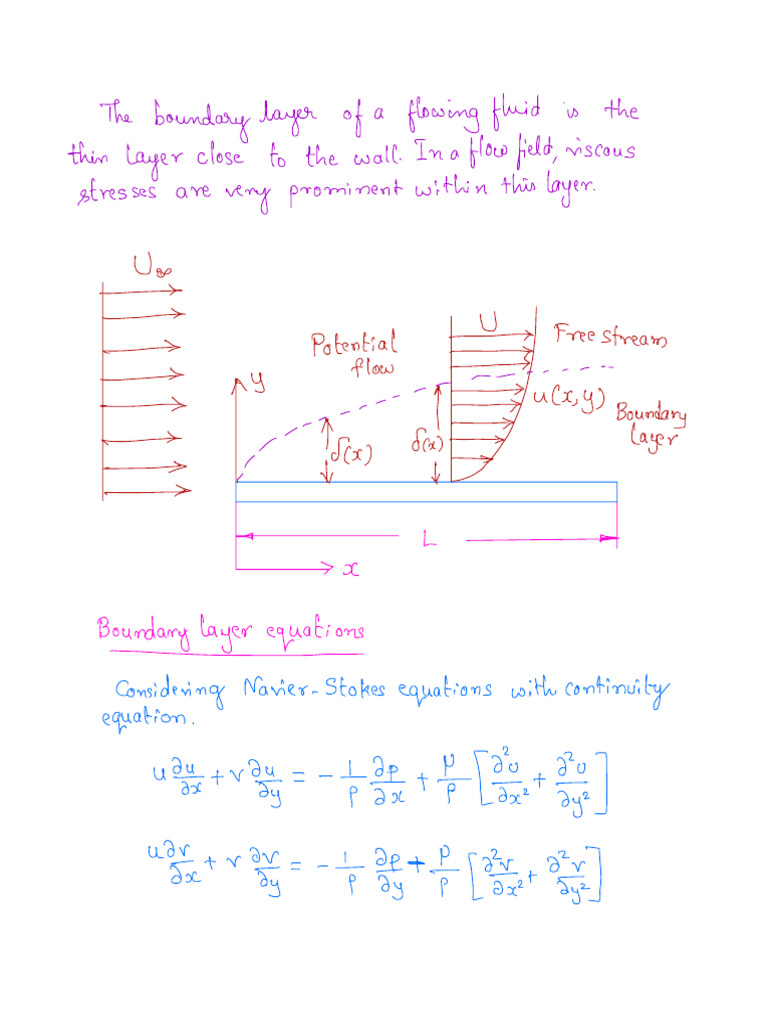 The boundary layer of a flowing fluid is the
thin layer close to the wall. In a flow field, viscous
stresses are very prominent within this layer.
U∞
U
Free stream
Potential
flow
y
u(x,y)
Boundary
layer
δ(x)
δ(x)
L
x
Boundary layer equations
Considering Navier-Stokes equations with continuity
equation.
u ∂u/∂x + v ∂u/∂y = - 1/ρ ∂p/∂x + μ/ρ [∂²u/∂x² + ∂²u/∂y²]
u ∂v/∂x + v ∂v/∂y = - 1/ρ ∂p/∂y + μ/ρ [∂²v/∂x² + ∂²v/∂y²]